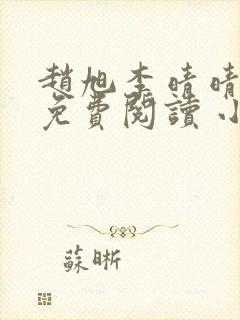 趙旭李晴晴
免費閱讀小
蘇晰